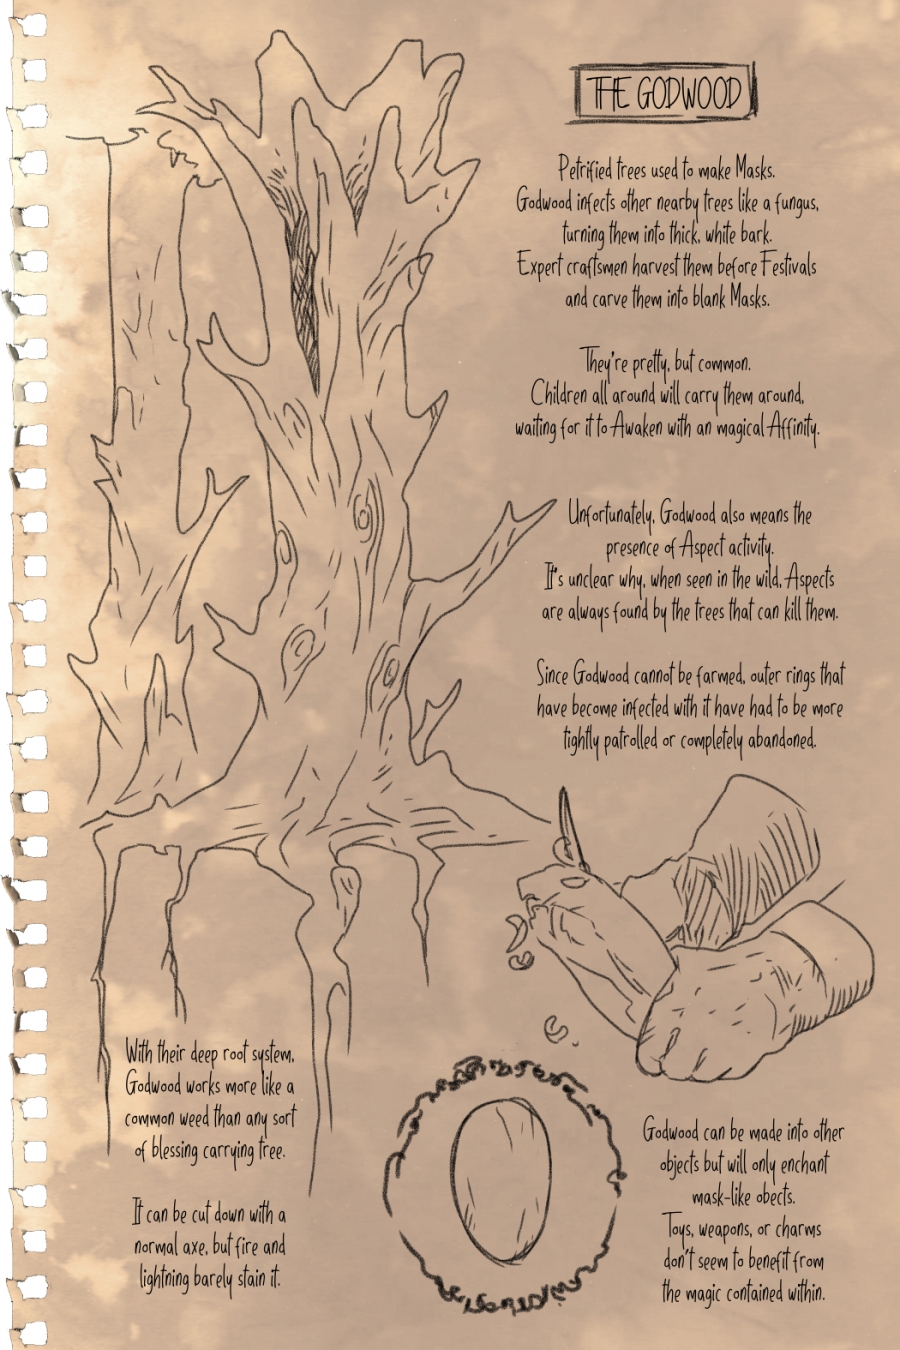 THE GODWOOD
Petrified trees used to make Masks.
Godwood infects other nearby trees like a fungus,
turning them into thick, white bark.
Expert craftsmen harvest them before Festivals
and carve them into blank Masks.
They're pretty, but common.
Children all around will carry them around,
waiting for it to Awaken with an magical Affinity.
Unfortunately, Godwood also means the
presence of Aspect activity.
It's unclear why, when seen in the wild, Aspects
are always found by the trees that can kill them.
Since Godwood cannot be farmed, outer rings that
have become infected with it have had to be more
tightly patrolled or completely abandoned.
With their deep root system,
Godwood works more like a
common weed than any sort
of blessing carrying tree.
It can be cut down with a
normal axe, but fire and
lightning barely stain it.
Godwood can be made into other
objects but will only enchant
mask-like obects.
Toys, weapons, or charms
don't seem to benefit from
the magic contained within.